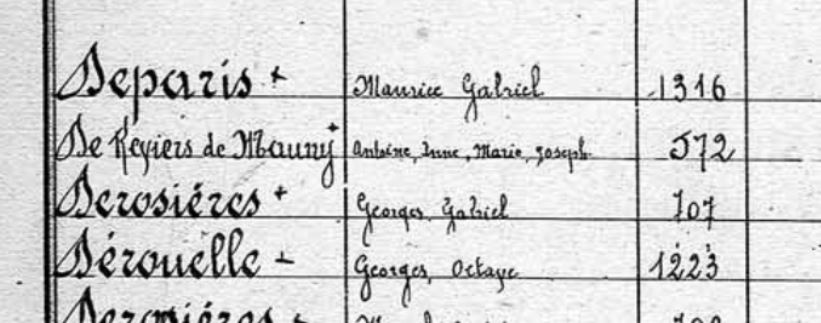 Deparis + Maurice Gabriel 1316
De Reviers de Mauny + Antoine, Anne, Marie, Joseph 572
Derosiéres + Georges, Gabriel 707
Dérouelle + Georges, Octave 1223
Derosiéres